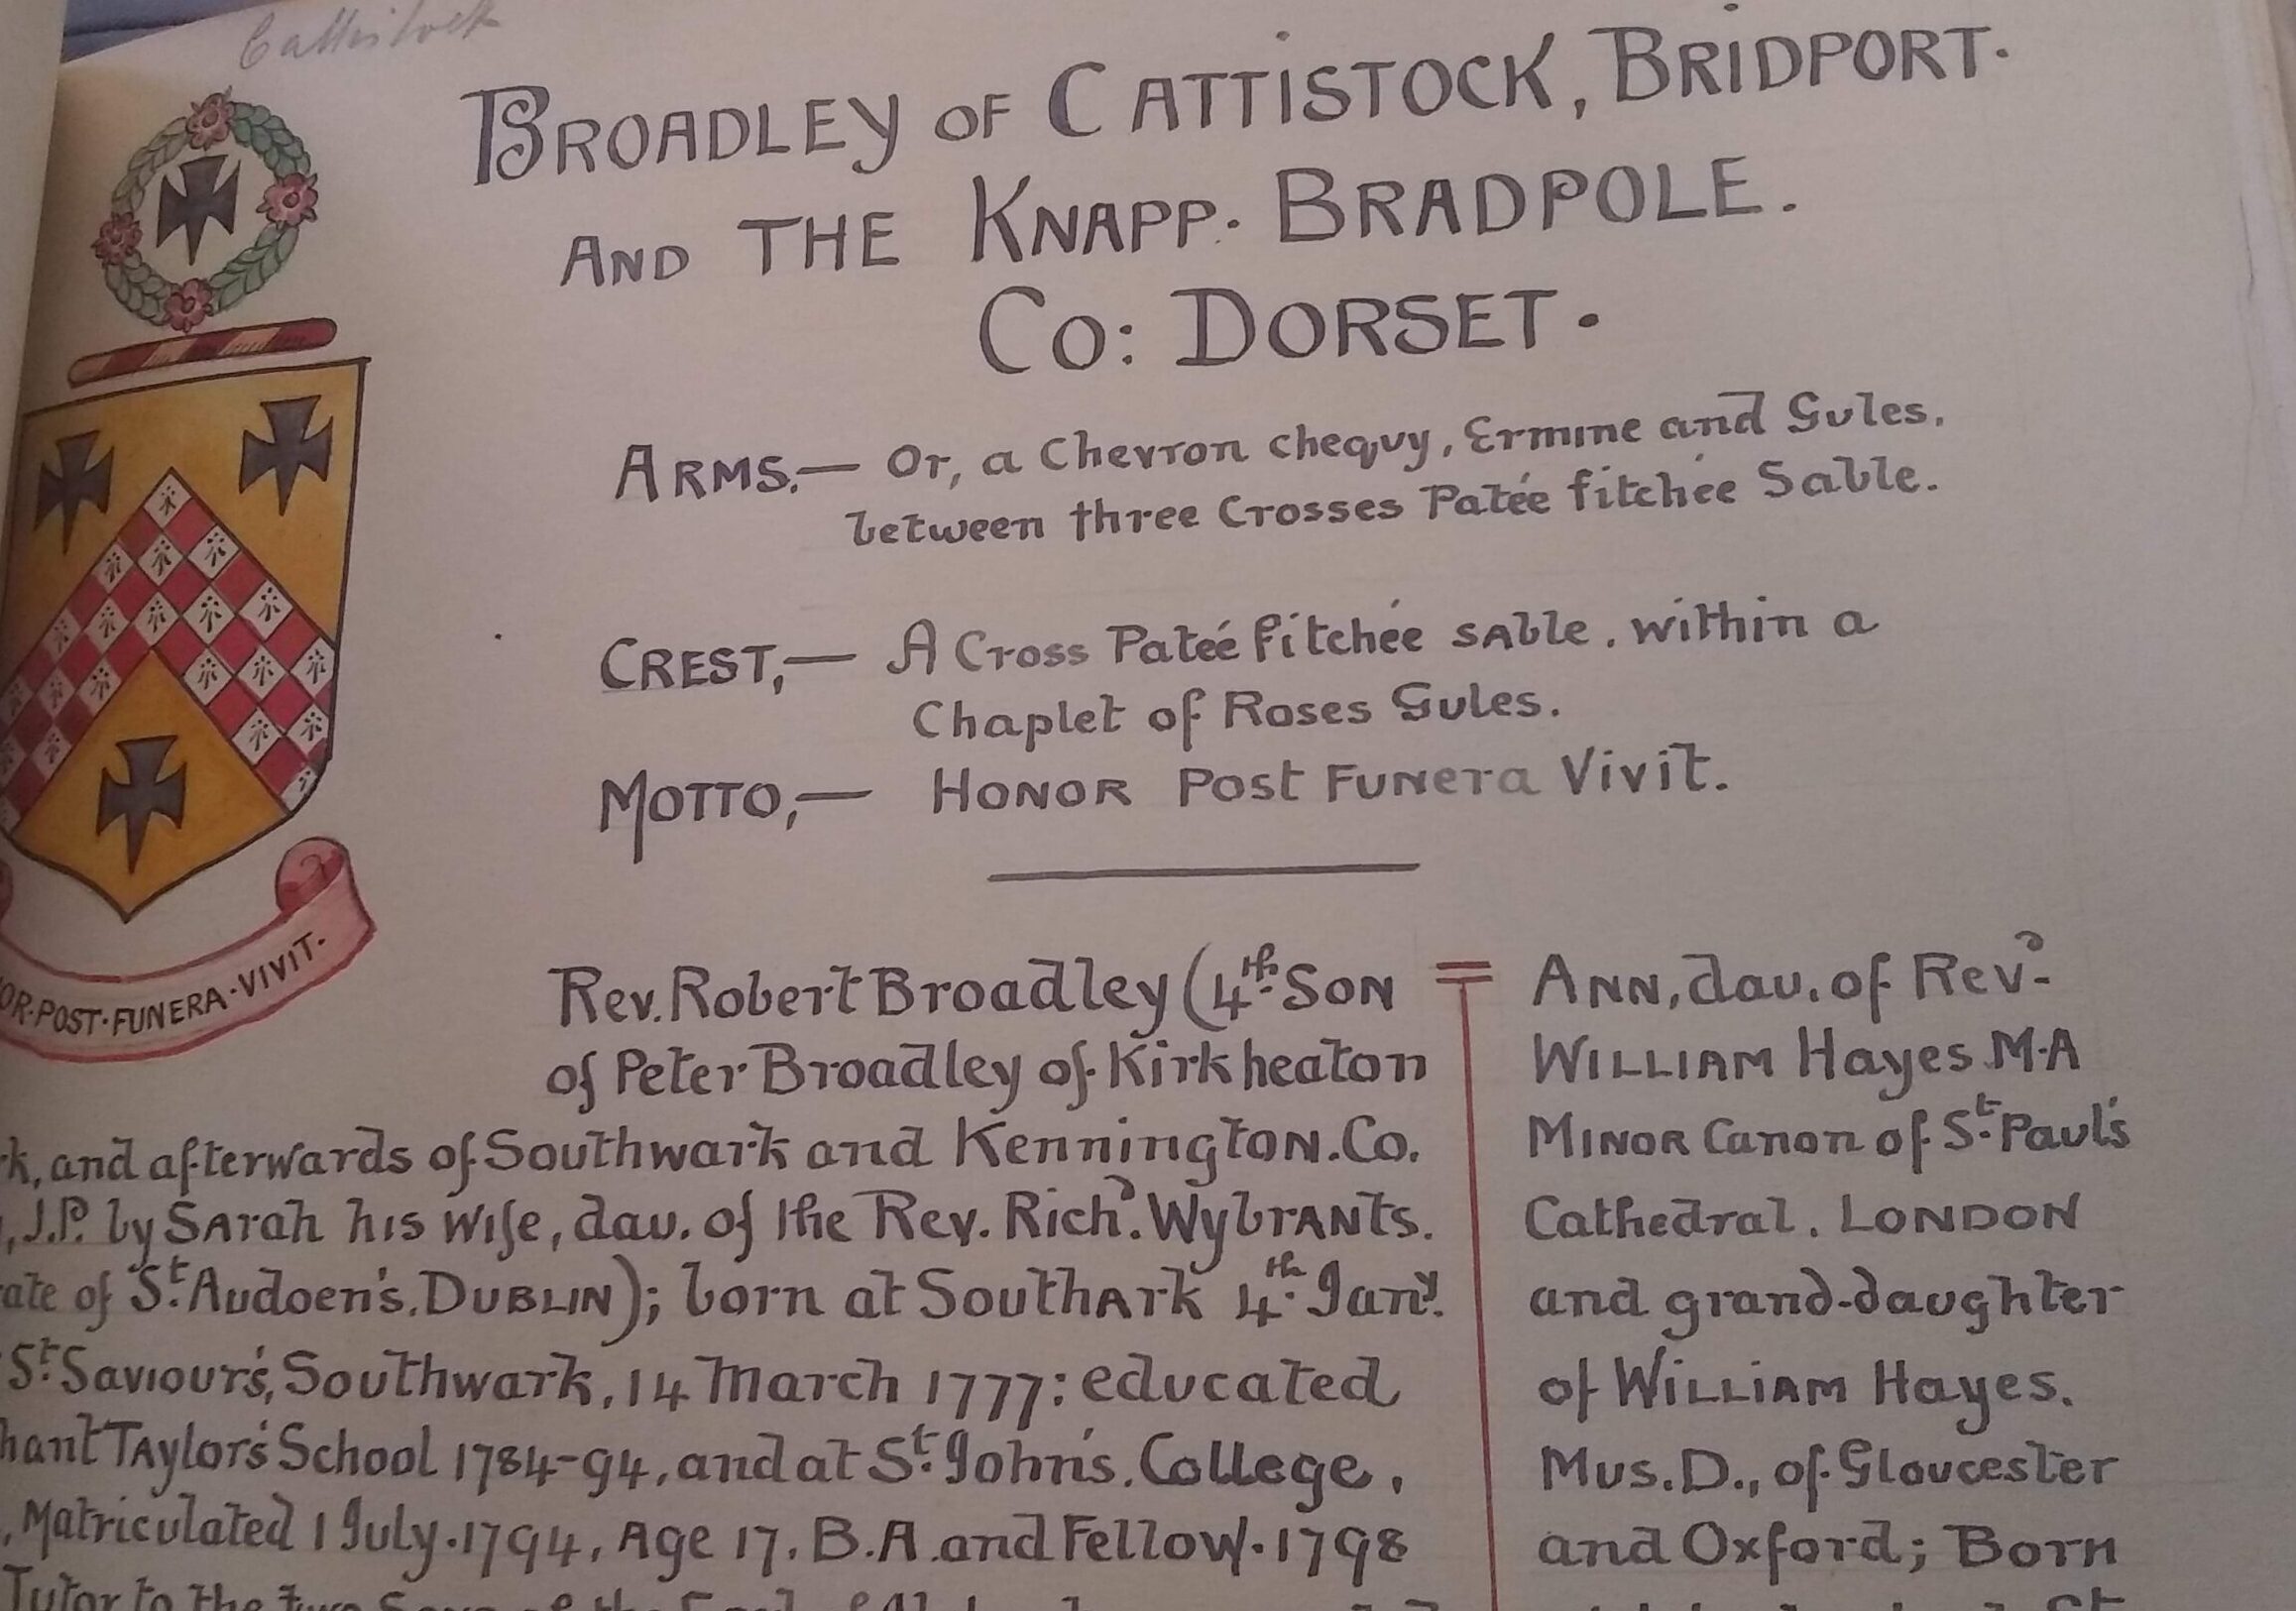 Cattistock
BROADLEY OF CATTISTOCK, BRIDPORT.
AND THE KNAPP. BRADPOLE.
CO: DORSET.
ARMS.— Or, a Chevron chequy, Ermine and Gules.
between three Crosses Patée fitchée Sable.
CREST,— A Cross Patée fitchée sable, within a
Chaplet of Roses Gules.
MOTTO,— HONOR Post Funera Vivit.
OR·POST·FUNERA·VIVIT.
Rev. Robert Broadley (4th. Son
of Peter Broadley of Kirkheaton
k, and afterwards of Southwark and Kennington. Co.
, J.P. by Sarah his wife, dau. of the Rev. Richd. Wybrants.
ate of St. Audoen's, Dublin); born at Southark 4th. Jany.
St. Saviour's, Southwark, 14 March 1777: educated
hant Taylor's School 1784-94, and at St. John's. College,
, Matriculated 1 July. 1794, Age 17. B.A. and Fellow. 1798
Tutor to the two Sons of the
Ann, dau. of Revd.
William Hayes M.A
Minor Canon of St. Paul's
Cathedral. London
and grand-daughter
of William Hayes.
Mus. D., of Gloucester
and Oxford; Born
St